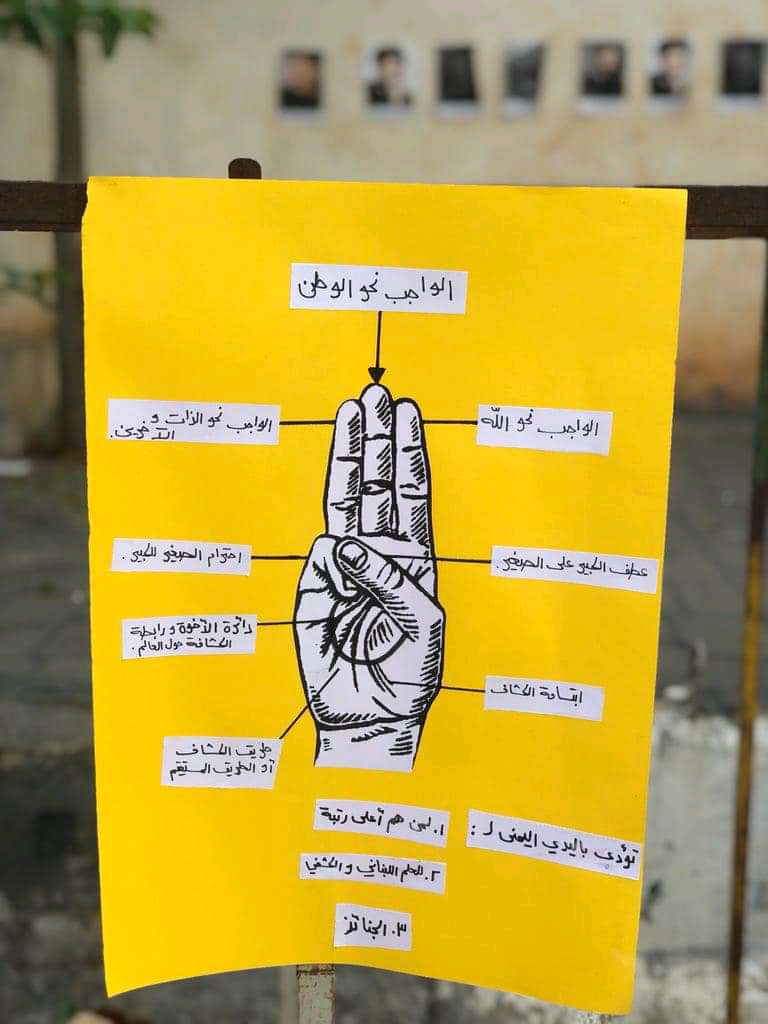 الواجب نحو الوطن
الواجب نحو الله
الواجب نحو الذات و
الآخرين.
عطف الكبير على الصغير.
احترام الصغير للكبير.
دائرة الأخوة و رابطة
الكشافة حول العالم.
ابتسامة الكشاف
طريق الكشاف
أو الطريق المستقيم
تؤدى باليدي اليمنى ل :
١. لمن هم أعلى رتبة
٢. للعلم اللبناني و الكشفي
٣. الجنائز